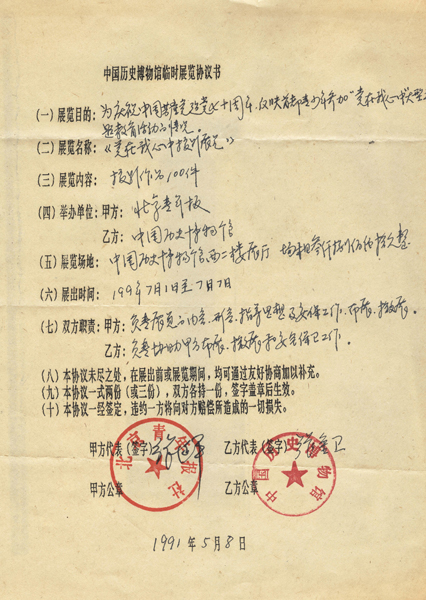 中国历史博物馆临时展览协议书
(一)展览目的:为庆祝中国共产党建党七十周年,反映首都青少年参加“党在我心中”大型主
题教育活动的情况。
(二)展览名称:《党在我心中报刊展览》
(三)展览内容:报刊作品100件
(四)举办单位:甲方:北京青年报
乙方:中国历史博物馆
(五)展览场地:中国历史博物馆西二楼展厅
(六)展出时间:1991年7月1日至7月7日
(七)双方职责:甲方:负责展览的内容、形式、指导思想及安保工作、布展、撤展。
乙方:负责协助甲方布展、撤展和安全保卫工作。
(八)本协议未尽之处,在展出前或展览期间,均可通过友好协商加以补充。
(九)本协议一式两份(或三份),双方各持一份,签字盖章后生效。
(十)本协议一经签定,违约一方将向对方赔偿所造成的一切损失。
甲方代表(签字) 乙方代表(签字)
北京青年报社 中国历史博物馆
甲方公章 乙方公章
1991年5月8日